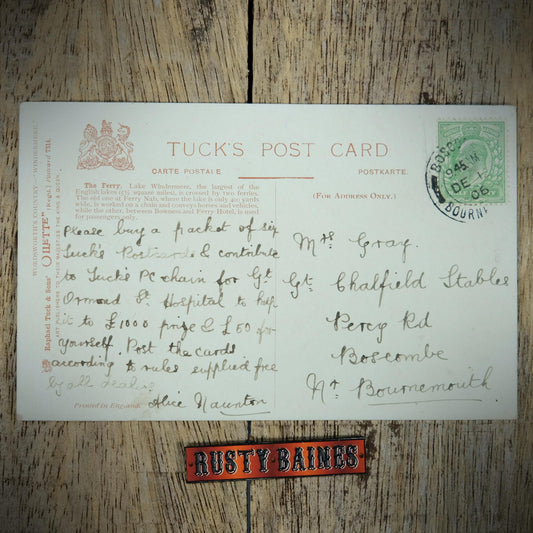 TUCK'S POST CARD
CARTE POSTALE
POSTKARTE.
(FOR ADDRESS ONLY.)
The Ferry. Lake Windermere, the largest of the
English lakes (5½ square miles), is crossed by two ferries.
The old one at Ferry Nab, where the lake is only 400 yards
wide, is worked on a chain and conveys horses and vehicles,
while the other, between Bowness and Ferry Hotel, is used
for passengers only.
WORDSWORTH'S COUNTRY—"WINDERMERE."
"OILETTE" [Regd.] Postcard 7314.
Raphael Tuck & Sons'
ART PUBLISHERS TO THEIR MAJESTIES THE KING & QUEEN.
Please buy a packet of six
Tuck's Postcards & contribute
to Tuck's PC chain for Gt
Ormond St. Hospital to help
it to £1000 prize & £50 for
yourself. Post the cards
according to rules supplied free
by all dealers
Alice Naunton
Printed in England.
Mrs Gray.
Gt. Chalfield Stables
Percy Rd
Boscombe
Nr Bournemouth
DE 1
06
BOURNE
RUSTY BAINES